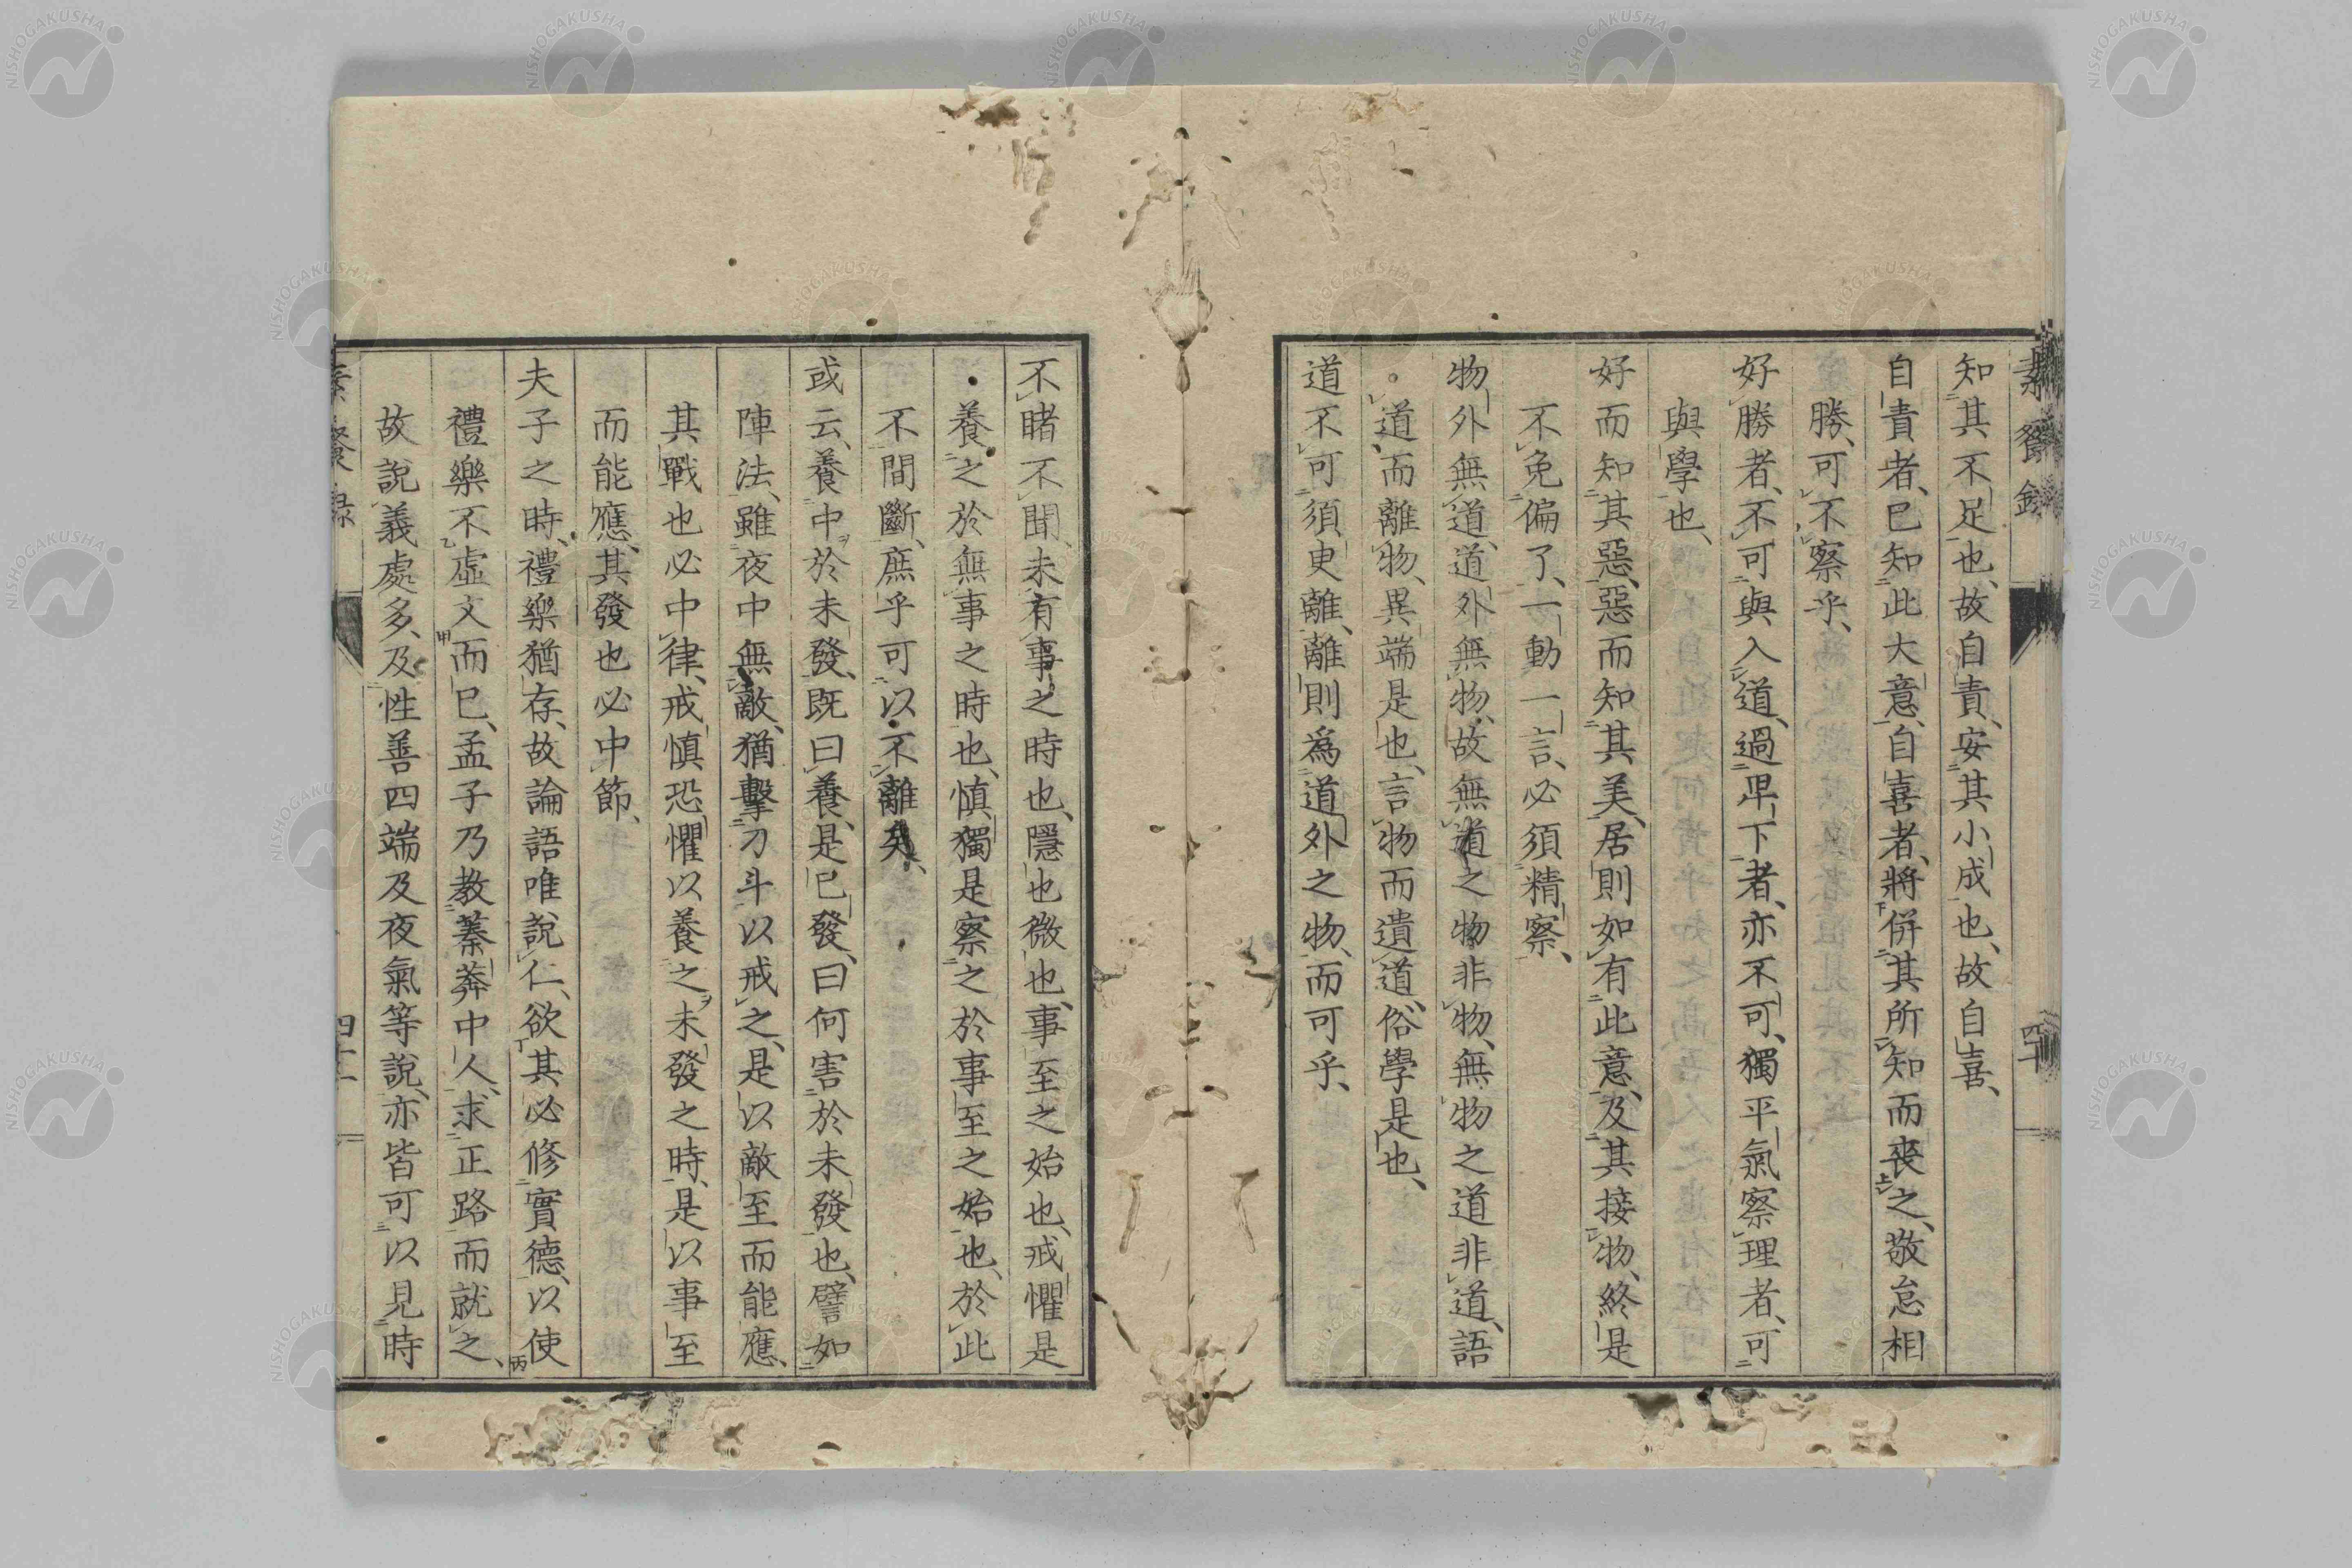 知其不足也、故自責、安其小成也、故自喜、
自責者、已知此大意、自喜者、將併其所知而喪之、敬怠相
勝、可不察乎、
好勝者、不可與入道、過卑下者、亦不可、獨平氣察理者、可
與學也、
好而知其惡、惡而知其美、居則如有此意、及其接物、終是
不免偏了、一動一言、必須精察、
物外無道、道外無物、故無道之物非物、無物之道非道、語
道、而離物、異端是也、言物而遺道、俗學是也、
道不可須更離、離則爲道外之物、而可乎、
四十
不睹不聞、未有事之時也、隱也微也、事至之始也、戒懼是
養之於無事之時也、慎獨是察之於事至之始也、於此
不間斷、庶乎可以不離矣、
或云、養中於未發、既曰養、是已發、曰何害於未發也、譬如
陣法、雖夜中無敵、猶擊刁斗以戒之、是以敵至而能應、
其戰也必中律、戒慎恐懼以養之未發之時、是以事至
而能應、其發也必中節、
夫子之時、禮樂猶存、故論語唯說仁、欲其必修實德、以使
禮樂不虛文而已、孟子乃教蓁莽中人、求正路而就之、
故說義處多、及性善四端及夜氣等說、亦皆可以見時
四十一
NISHOGAKUSHA